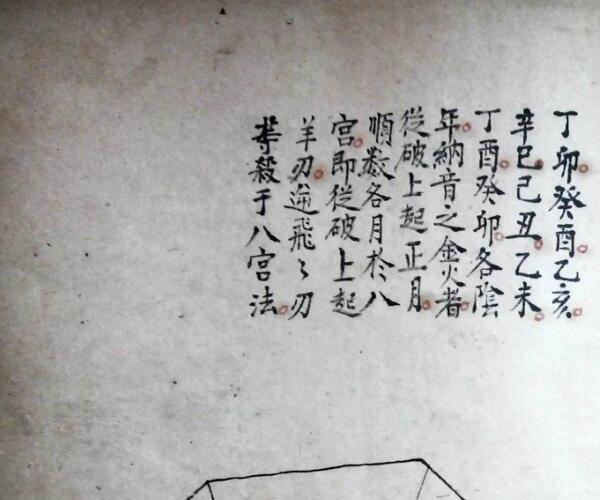 丁卯癸酉乙亥
辛巳己丑乙未
丁酉癸卯各陰
年納音之金火者
從破上起正月
順数各月於八
宮即從破上起
羊刃飛々刃
等殺于八宮法